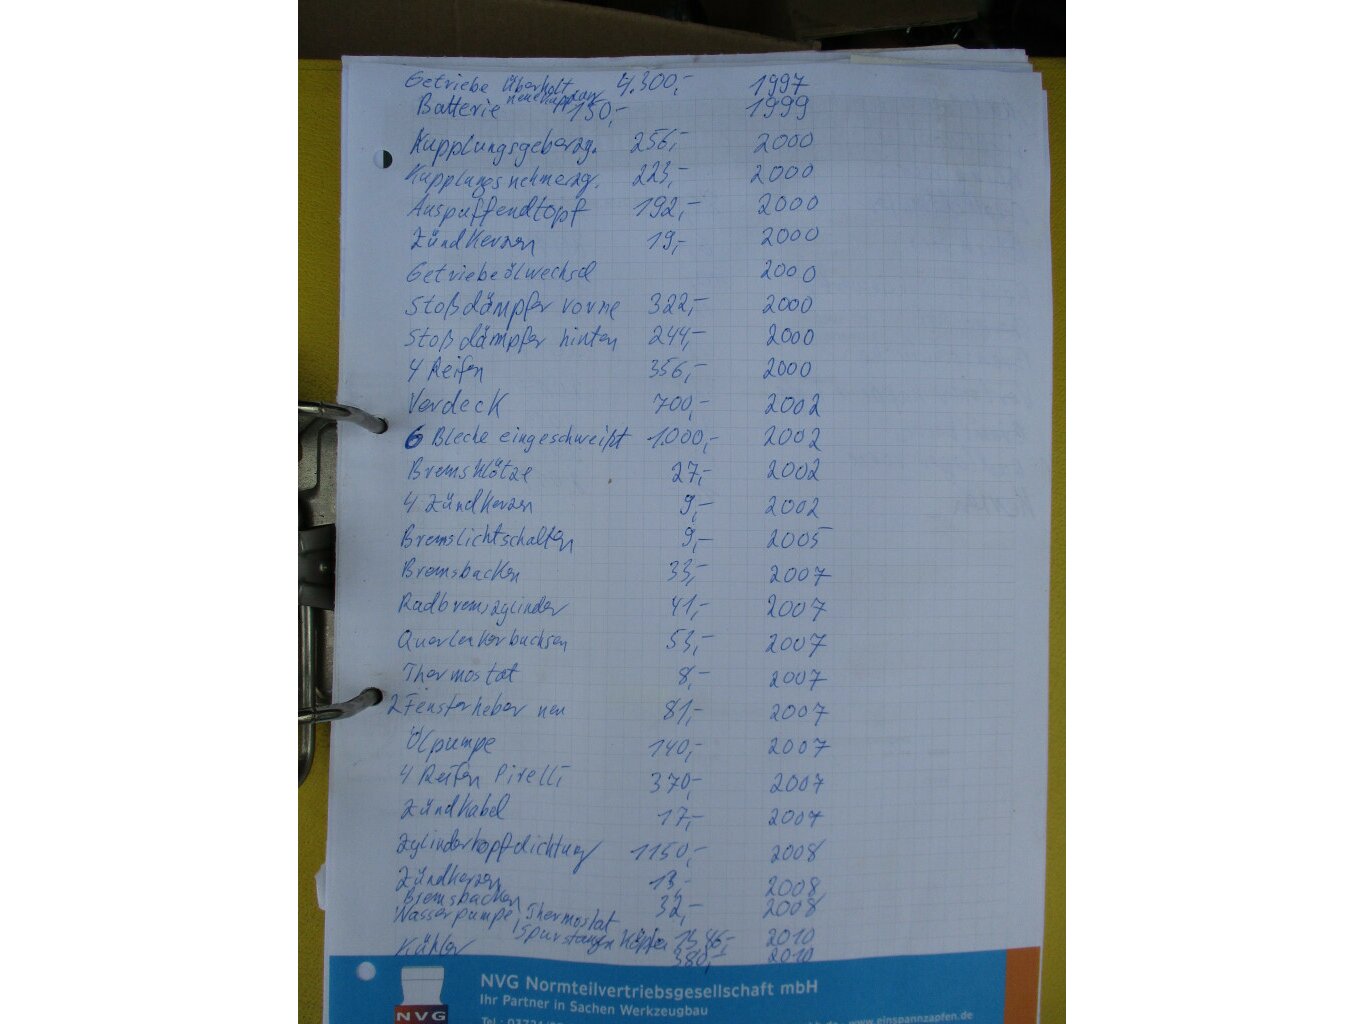 Getriebe überholt 4.300,- 1997
neue Kupplung
Batterie 150,- 1999
Kupplungsgeberzy. 256,- 2000
Kupplungsnehmerzy. 223,- 2000
Auspuffendtopf 192,- 2000
Zündkerzen 19,- 2000
Getriebeölwechsel 2000
Stoßdämpfer vorne 322,- 2000
Stoßdämpfer hinten 244,- 2000
4 Reifen 356,- 2000
Verdeck 700,- 2002
6 Bleche eingeschweißt 1.000,- 2002
Bremsklötze 27,- 2002
4 Zündkerzen 9,- 2002
Bremslichtschalter 9,- 2005
Bremsbacken 33,- 2007
Radbremszylinder 41,- 2007
Querlenkerbuchsen 53,- 2007
Thermostat 8,- 2007
2 Fensterheber neu 81,- 2007
Ölpumpe 140,- 2007
4 Reifen Pirelli 370,- 2007
Zündkabel 17,- 2007
Zylinderkopfdichtung 1150,- 2008
Zündkerzen 13,- 2008
Bremsbacken 32,- 2008
Wasserpumpe, Thermostat
Spurstangen Köpfe 2010
Kühler 380,- 2010
NVG Normteilvertriebsgesellschaft mbH
Ihr Partner in Sachen Werkzeugbau
NVG
www.einspannzapfen.de